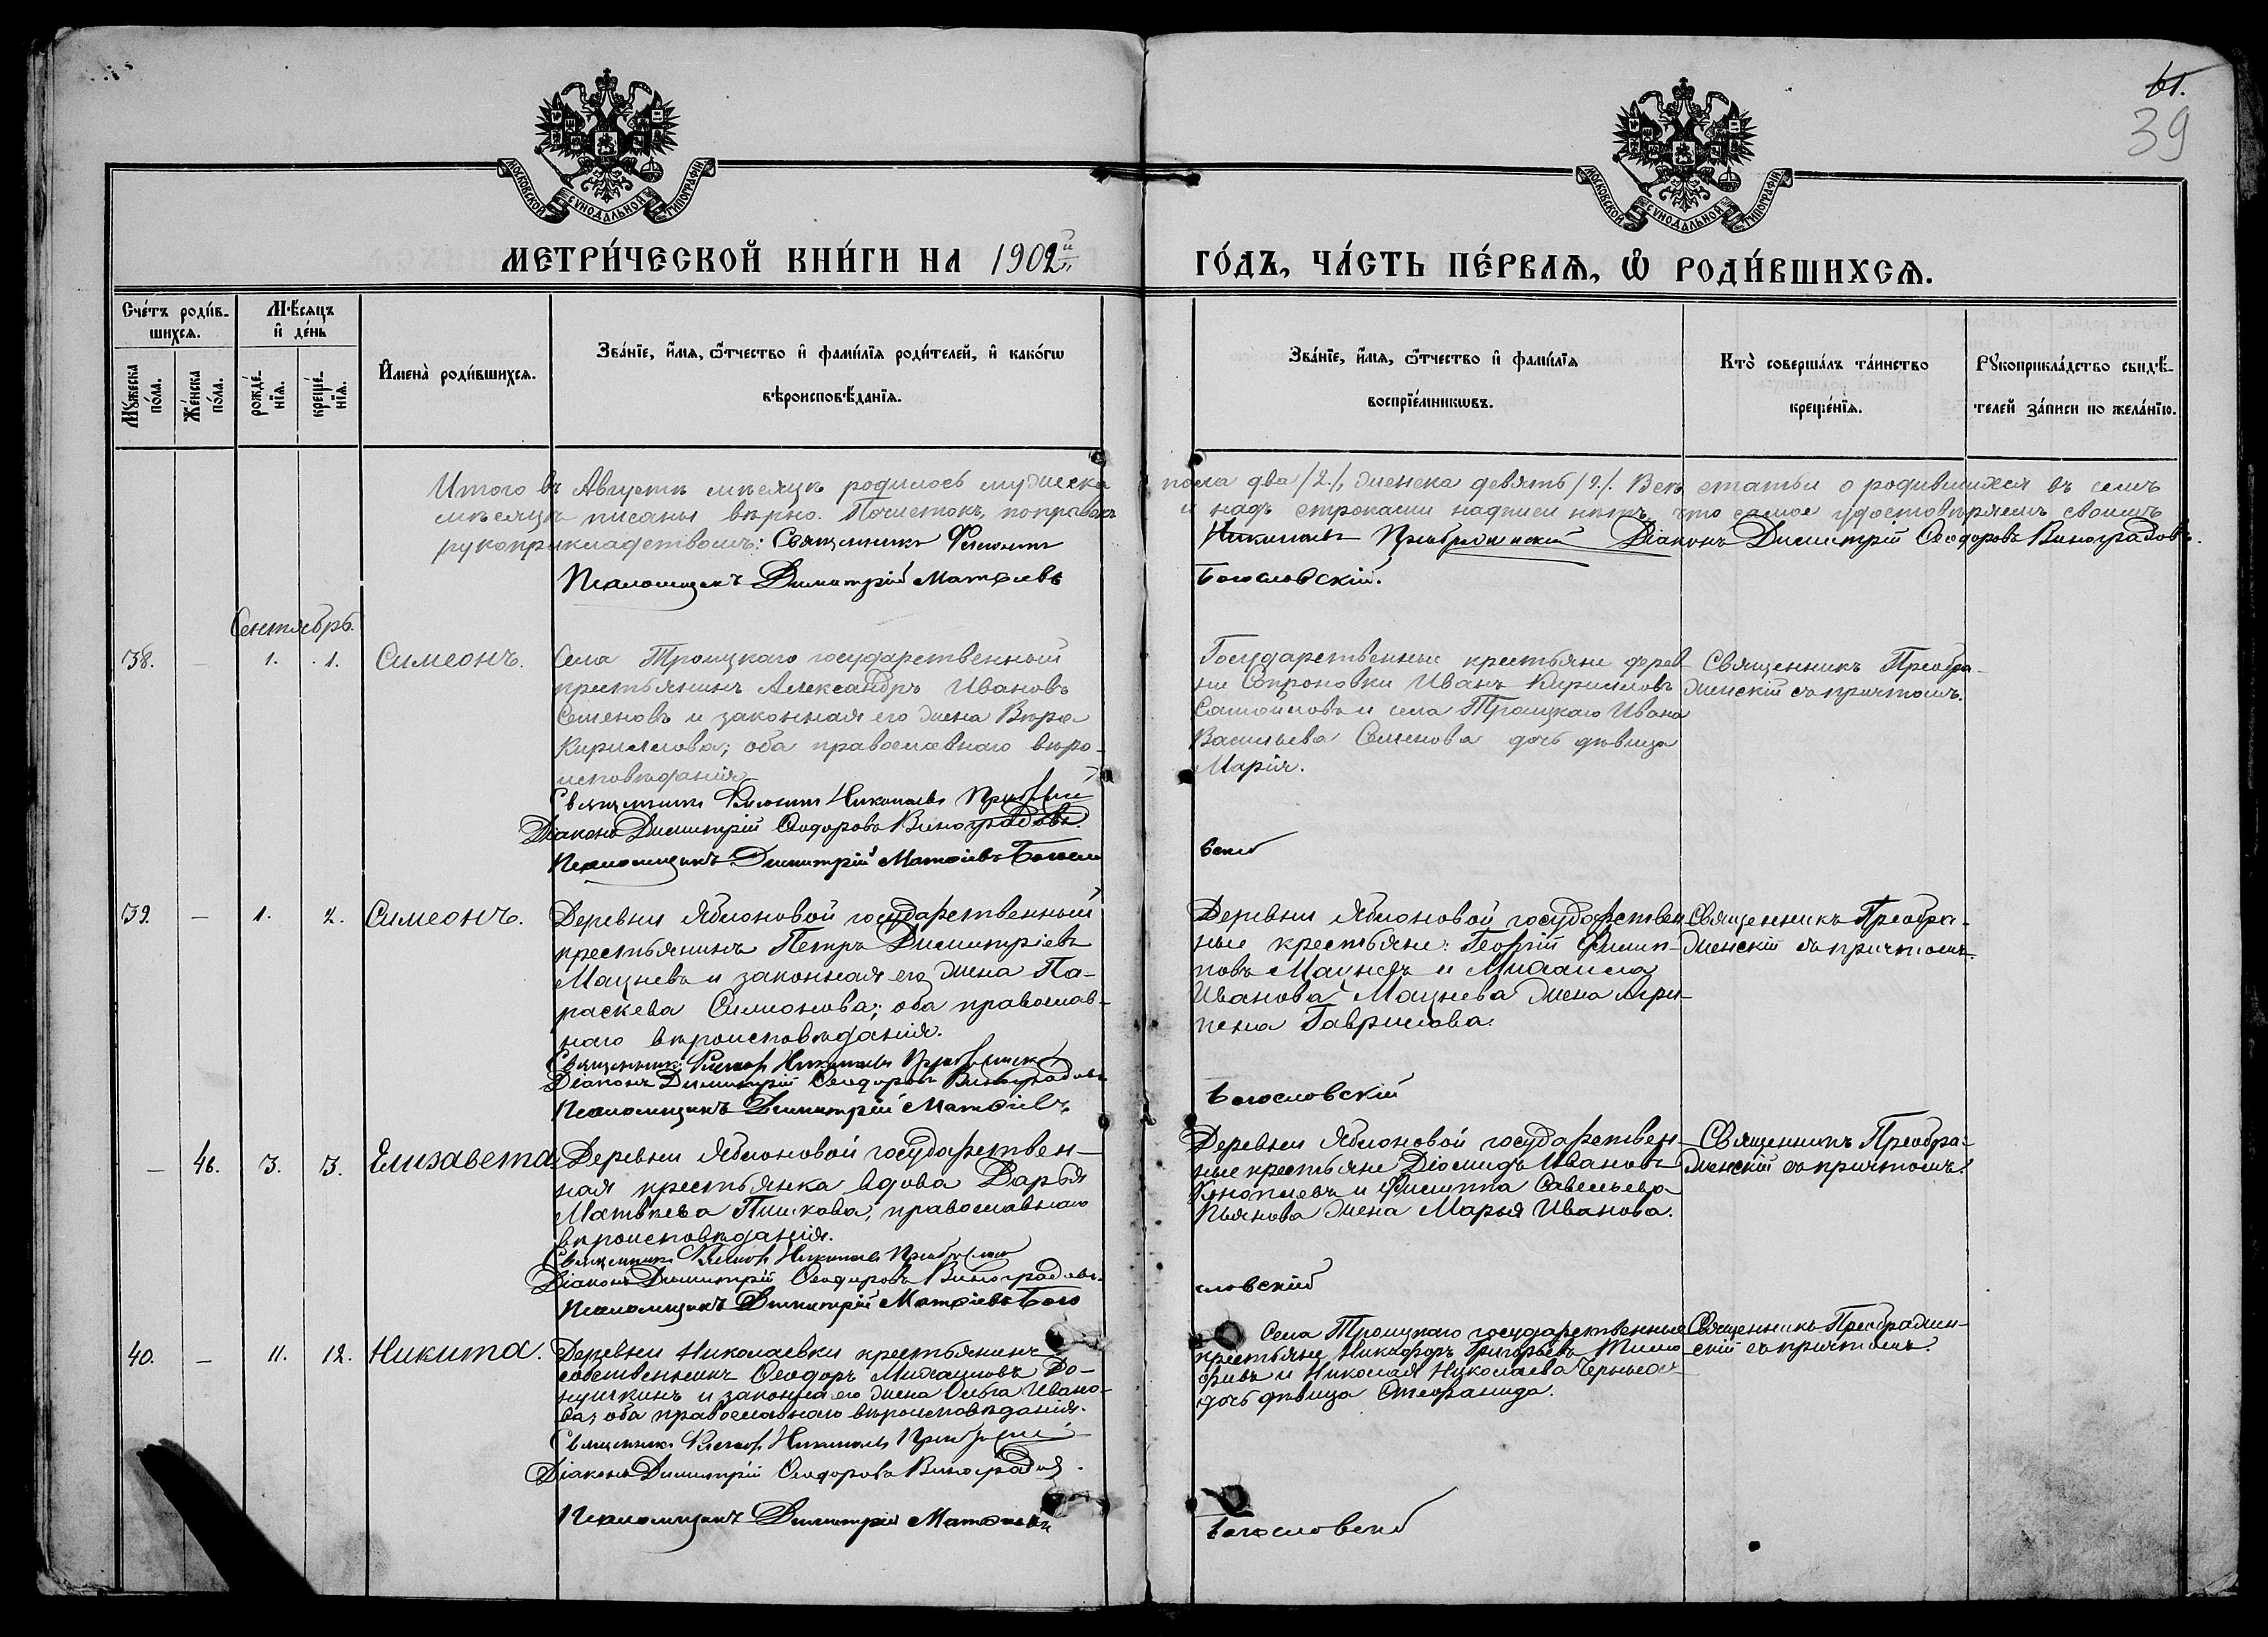 61.
39
МОСКОВСКОЙ СУНОДАЛЬНОЙ ТИПОГРАФІИ
МОСКОВСКОЙ СУНОДАЛЬНОЙ ТИПОГРАФІИ
МЕТРИ́ЧЕСКОЙ КНИ́ГИ НА 1902й ГО́ДЪ, ЧА́СТЬ ПЕ́РВАѦ, Ѡ҆ РОДИ́ВШИХСѦ.
Сче́тъ роди́в-
шихсѧ.
Мꙋ́жеска по́ла.
Же́нска по́ла.
Мѣ́сѧцъ
и҆ де́нь
рожде́-
нїѧ.
креще́-
нїѧ.
И҆мена̀ роди́вшихсѧ.
Зва́нїе, и҆́мѧ, ѻ҆́тчество и҆ фами́лїѧ роди́телей, и҆ како́гѡ
вѣроисповѣ́данїѧ.
Зва́нїе, и҆́мѧ, ѻ҆́тчество и҆ фами́лїѧ
воспрїе́мникѡвъ.
Кто̀ соверша́лъ та́инство
креще́нїѧ.
Рꙋкоприкла́дство свидѣ́-
телей за́писи по жела́нїю.
Итого въ Августѣ мѣсяцѣ родилось мужеска пола два /2/, женска девять /9/. Всѣ статьи о родившихся въ семъ
мѣсяцѣ писаны вѣрно. Почистокъ, поправокъ и надъ строками надписи нѣтъ, что самое удостовѣряемъ своимъ
рукоприкладствомъ: Священникъ Николаевъ Преображенскій Діаконъ Димитрій Ѳеодоровъ Виноградовъ.
Псаломщикъ Димитрій Матѳіевъ Богословскій.
Сентябрь.
38. — 1. 1. Симеонъ.
Села Троицкаго государственный
крестьянинъ Александръ Ивановъ
Семеновъ и законная его жена Вѣра
Кириллова; оба православнаго вѣро-
исповѣданія
Священникъ Николаевъ
Діаконъ Димитрій Ѳеодоровъ Виноградовъ.
Псаломщикъ Димитрій Матѳіевъ Богосло
вскій
Государственные крестьяне дерев-
ни Сопроновки Иванъ Кирилловъ
Самойловъ и села Троицкаго Ивана
Васильева Семенова дочь дѣвица
Марія.
Священникъ Преобра-
женскій съ причтомъ.
39. — 1. 2. Симеонъ.
Деревни Яблоновой государственный
крестьянинъ Петръ Димитріевъ
Мацневъ и законная его жена Па-
раскева Симонова; оба православ-
наго вѣроисповѣданія.
Священникъ Николаевъ
Діаконъ Димитрій Ѳеодоровъ Виноградовъ
Псаломщикъ Димитрій Матѳіевъ
Богословскій
Деревни Яблоновой государствен-
ные крестьяне: Георгій Филип-
повъ Мацневъ и Михаила
Иванова Мацнева жена Агри-
пена Гаврилова.
Священникъ Преобра-
женскій съ причтомъ.
— 46. 3. 3. Елизавета.
Деревни Яблоновой государствен-
ная крестьянка вдова Дарья
Матвѣева православнаго
вѣроисповѣданія.
Священникъ Николаевъ
Діаконъ Димитрій Ѳеодоровъ Виноградовъ.
Псаломщикъ Димитрій Матѳіевъ Бого
словскій
Деревни Яблоновой государствен-
ные крестьяне Діомидъ Ивановъ
и Филиппа Савельева
Пьянова жена Марья Иванова.
Священникъ Преобра-
женскій съ причтомъ.
40. — 11. 12. Никита.
Деревни Николаевки крестьянинъ
собственникъ Ѳеодоръ Михаиловъ До-
нушкинъ и законная его жена Ольга Ивано-
ва, оба православнаго вѣроисповѣданія.
Священникъ Николаевъ
Діаконъ Димитрій Ѳеодоровъ Виноградов
Псаломщикъ Димитрій Матѳіевъ
Богословскій
Села Троицкаго государственные
крестьяне Никифоръ Григорьевъ Тимо-
и Николая Николаева
дочь дѣвица
Священникъ Преображен-
скій съ причтомъ.